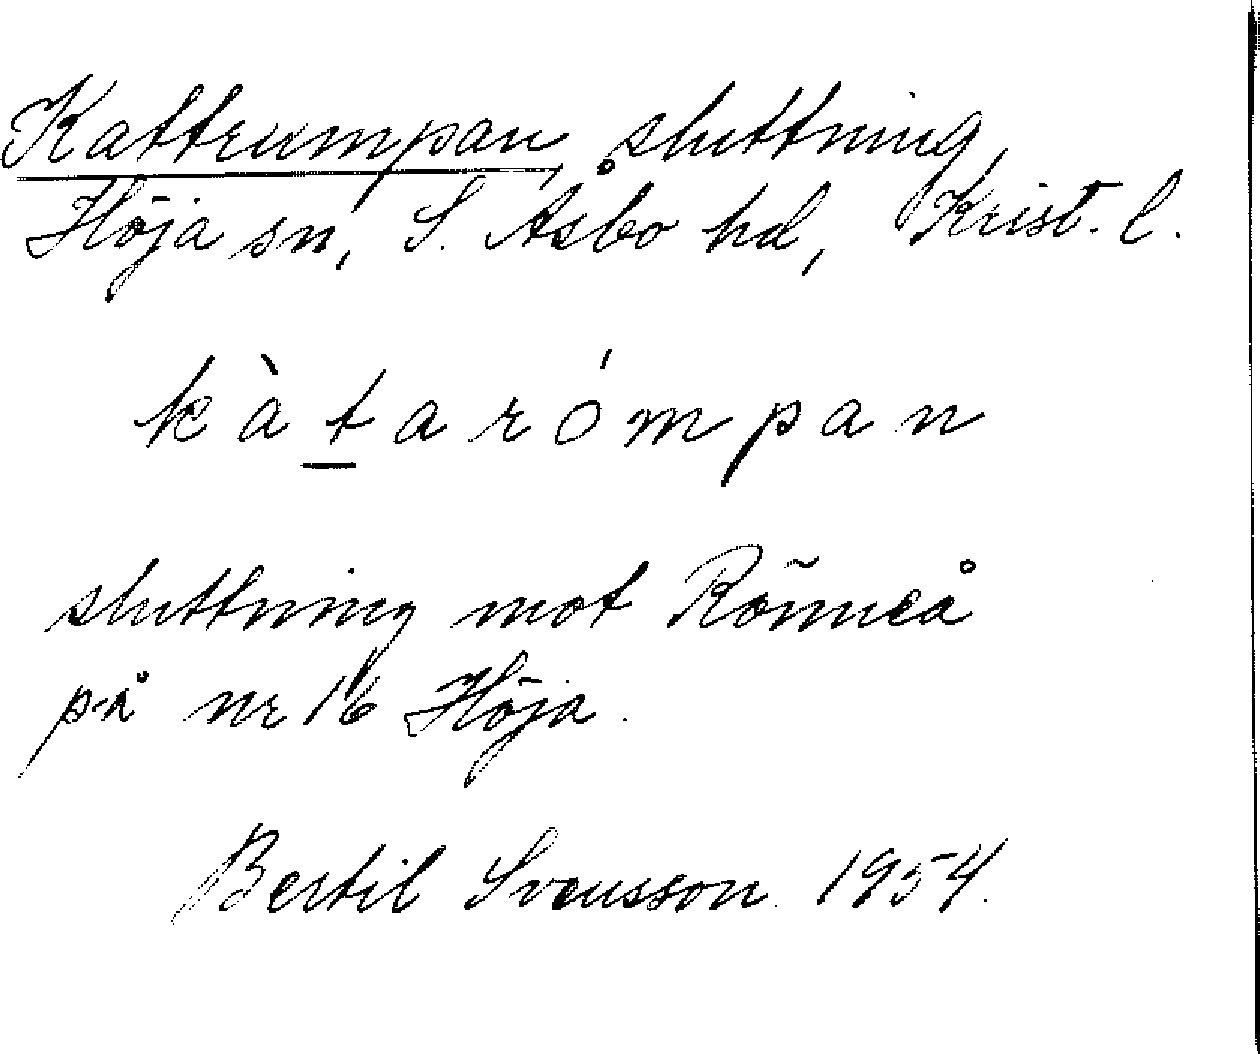 Kattrumpan, sluttning,
Höja sn, S. Åsbo hd, Krist. l.
kàtarómpan
sluttning mot Rönneå
på nr 16 Höja.
Bertil Svensson. 1954.